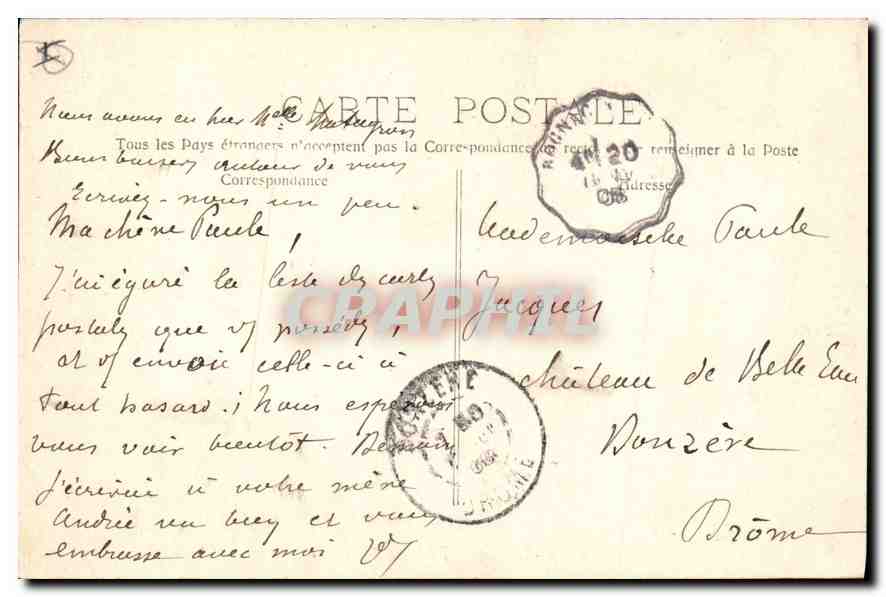 CARTE POSTALE
Tous les Pays étrangers n'acceptent pas la Correspondance au recto (se renseigner à la Poste
Correspondance
Adresse
Nous avons eu hier Melle
Bons baisers autour de vous
Ecrivez-nous un peu.
Ma chère Paule,
J'ai égaré la liste des cartes
postales que vs possédez,
et vs envoie celle-ci à
tout hasard. Nous espérons
vous voir bientôt. Demain
j'écrirai à votre mère
Andrée va bien et vous
embrasse avec moi
Mademoiselle Paule
Jacques
château de Belle Eau
Donzère
Drôme
20
08
DONZERE
DROME
CPAPHIL